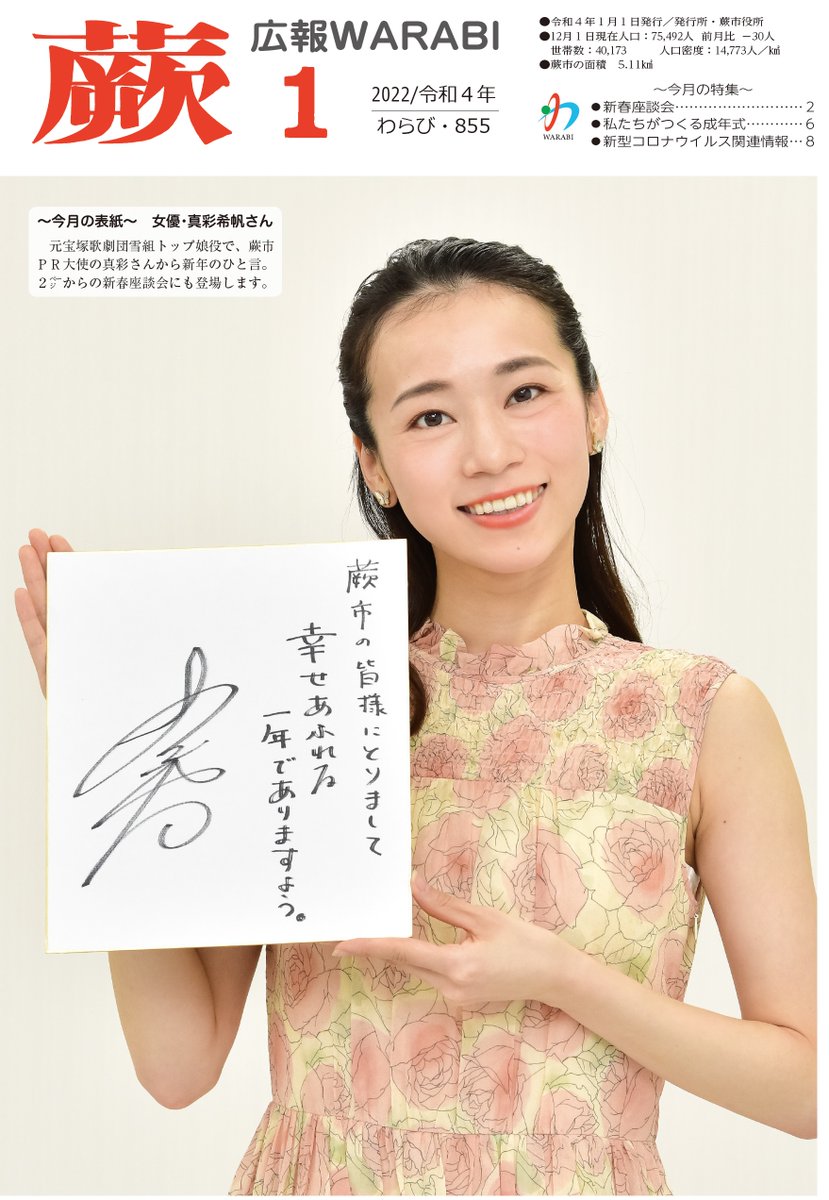 蕨
広報WARABI
1
2022/令和4年
わらび・855
●令和4年1月1日発行／発行所・蕨市役所
●12月1日現在人口：75,492人 前月比 －30人
世帯数：40,173 人口密度：14,773人／㎢
●蕨市の面積 5.11㎢
WARABI
～今月の特集～
●新春座談会…………………………2
●私たちがつくる成年式…………6
●新型コロナウイルス関連情報…8
～今月の表紙～ 女優・真彩希帆さん
元宝塚歌劇団雪組トップ娘役で、蕨市
PR大使の真彩さんから新年のひと言。
2㌻からの新春座談会にも登場します。
蕨市の皆様にとりまして
幸せあふれる
一年でありますよう。